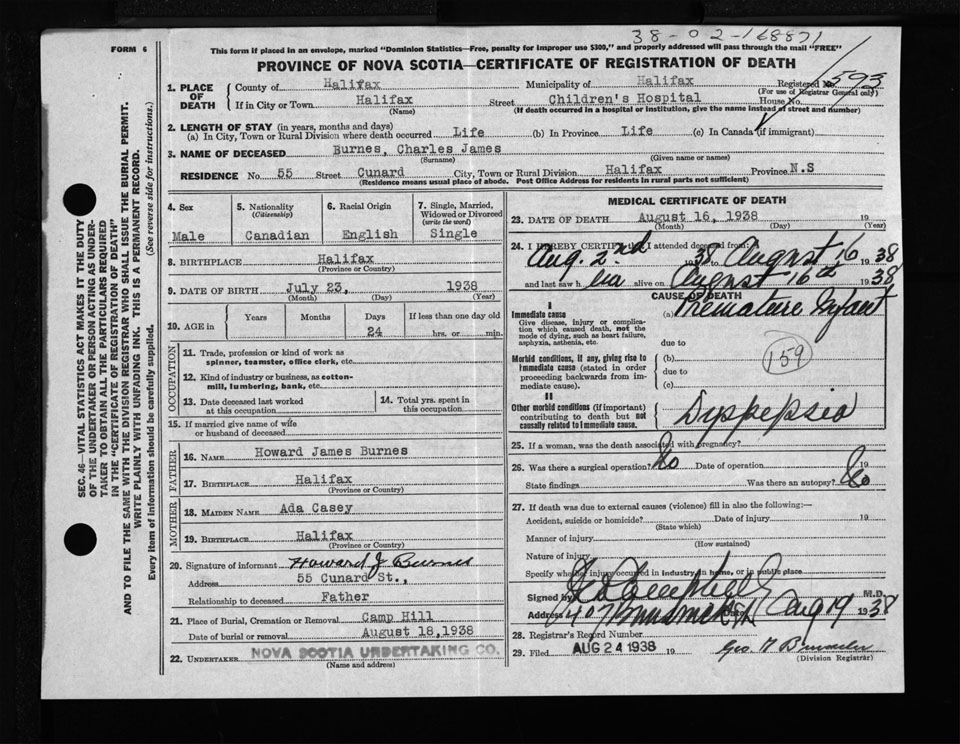 38-02-168871
FORM 6
This form if placed in an envelope, marked "Dominion Statistics—Free, penalty for improper use $300," and properly addressed will pass through the mail "FREE"
PROVINCE OF NOVA SCOTIA—CERTIFICATE OF REGISTRATION OF DEATH
1. PLACE OF DEATH
County of Halifax Municipality of Halifax Registered No. 593
(For use of Registrar General only)
If in City or Town Halifax Street Children's Hospital House No.
(Name) (If death occurred in a hospital or institution, give the name instead of street and number)
2. LENGTH OF STAY (in years, months and days)
(a) In City, Town or Rural Division where death occurred Life (b) In Province Life (c) In Canada (if immigrant)
3. NAME OF DECEASED Burnes, Charles James
(Surname) (Given name or names)
RESIDENCE No. 55 Street Cunard City, Town or Rural Division Halifax Province N.S
(Residence means usual place of abode. Post Office Address for residents in rural parts not sufficient)
SEC. 46—VITAL STATISTICS ACT MAKES IT THE DUTY
OF THE UNDERTAKER OR PERSON ACTING AS UNDER-
TAKER TO OBTAIN ALL THE PARTICULARS REQUIRED
IN THE "CERTIFICATE OF REGISTRATION OF DEATH"
AND TO FILE THE SAME WITH THE DIVISION REGISTRAR WHO SHALL ISSUE THE BURIAL PERMIT.
WRITE PLAINLY WITH UNFADING INK. THIS IS A PERMANENT RECORD.
Every item of information should be carefully supplied. (See reverse side for instructions.)
4. Sex
Male
5. Nationality
(Citizenship)
Canadian
6. Racial Origin
English
7. Single, Married,
Widowed or Divorced
(write the word)
Single
8. BIRTHPLACE Halifax
(Province or Country)
9. DATE OF BIRTH July 23, 1938
(Month) (Day) (Year)
10. AGE in
Years Months Days If less than one day old
24 hrs. or min.
OCCUPATION
11. Trade, profession or kind of work as
spinner, teamster, office clerk, etc.
12. Kind of industry or business, as cotton-
mill, lumbering, bank, etc.
13. Date deceased last worked
at this occupation
14. Total yrs. spent in
this occupation
15. If married give name of wife
or husband of deceased
FATHER
16. NAME Howard James Burnes
17. BIRTHPLACE Halifax
(Province or Country)
MOTHER
18. MAIDEN NAME Ada Casey
19. BIRTHPLACE Halifax
(Province or Country)
20. Signature of informant Howard J Burnes
Address 55 Cunard St.,
Relationship to deceased Father
21. Place of Burial, Cremation or Removal Camp Hill
Date of burial or removal August 18,1938
22. UNDERTAKER NOVA SCOTIA UNDERTAKING CO.
(Name and address)
MEDICAL CERTIFICATE OF DEATH
23. DATE OF DEATH August 16, 1938 19
(Month) (Day) (Year)
24. I HEREBY CERTIFY I attended deceased from:
Aug. 2nd 1938 August 16 1938
and last saw h alive on August 16th 1938
CAUSE OF DEATH
I
Immediate cause
Give disease, injury or complica-
tion which caused death, not the
mode of dying, such as heart failure,
asphyxia, asthenia, etc.
(a) Premature Infant
due to
Morbid conditions, if any, giving rise to
immediate cause (stated in order
proceeding backwards from im-
mediate cause).
(b)
due to
(c)
159
II
Other morbid conditions (if important)
contributing to death but not
causally related to immediate cause.
Dyspepsia
25. If a woman, was the death associated with pregnancy?
26. Was there a surgical operation? No Date of operation 19
State findings Was there an autopsy? No
27. If death was due to external causes (violence) fill in also the following:—
Accident, suicide or homicide? Date of injury 19
(State which)
Manner of injury
(How sustained)
Nature of injury
Specify whether injury occurred in industry, in home, or in public place
Signed by M.D.
Address 407 Brunswick St Aug 19 1938
28. Registrar's Record Number
29. Filed AUG 24 1938 19 Geo.
(Division Registrar)